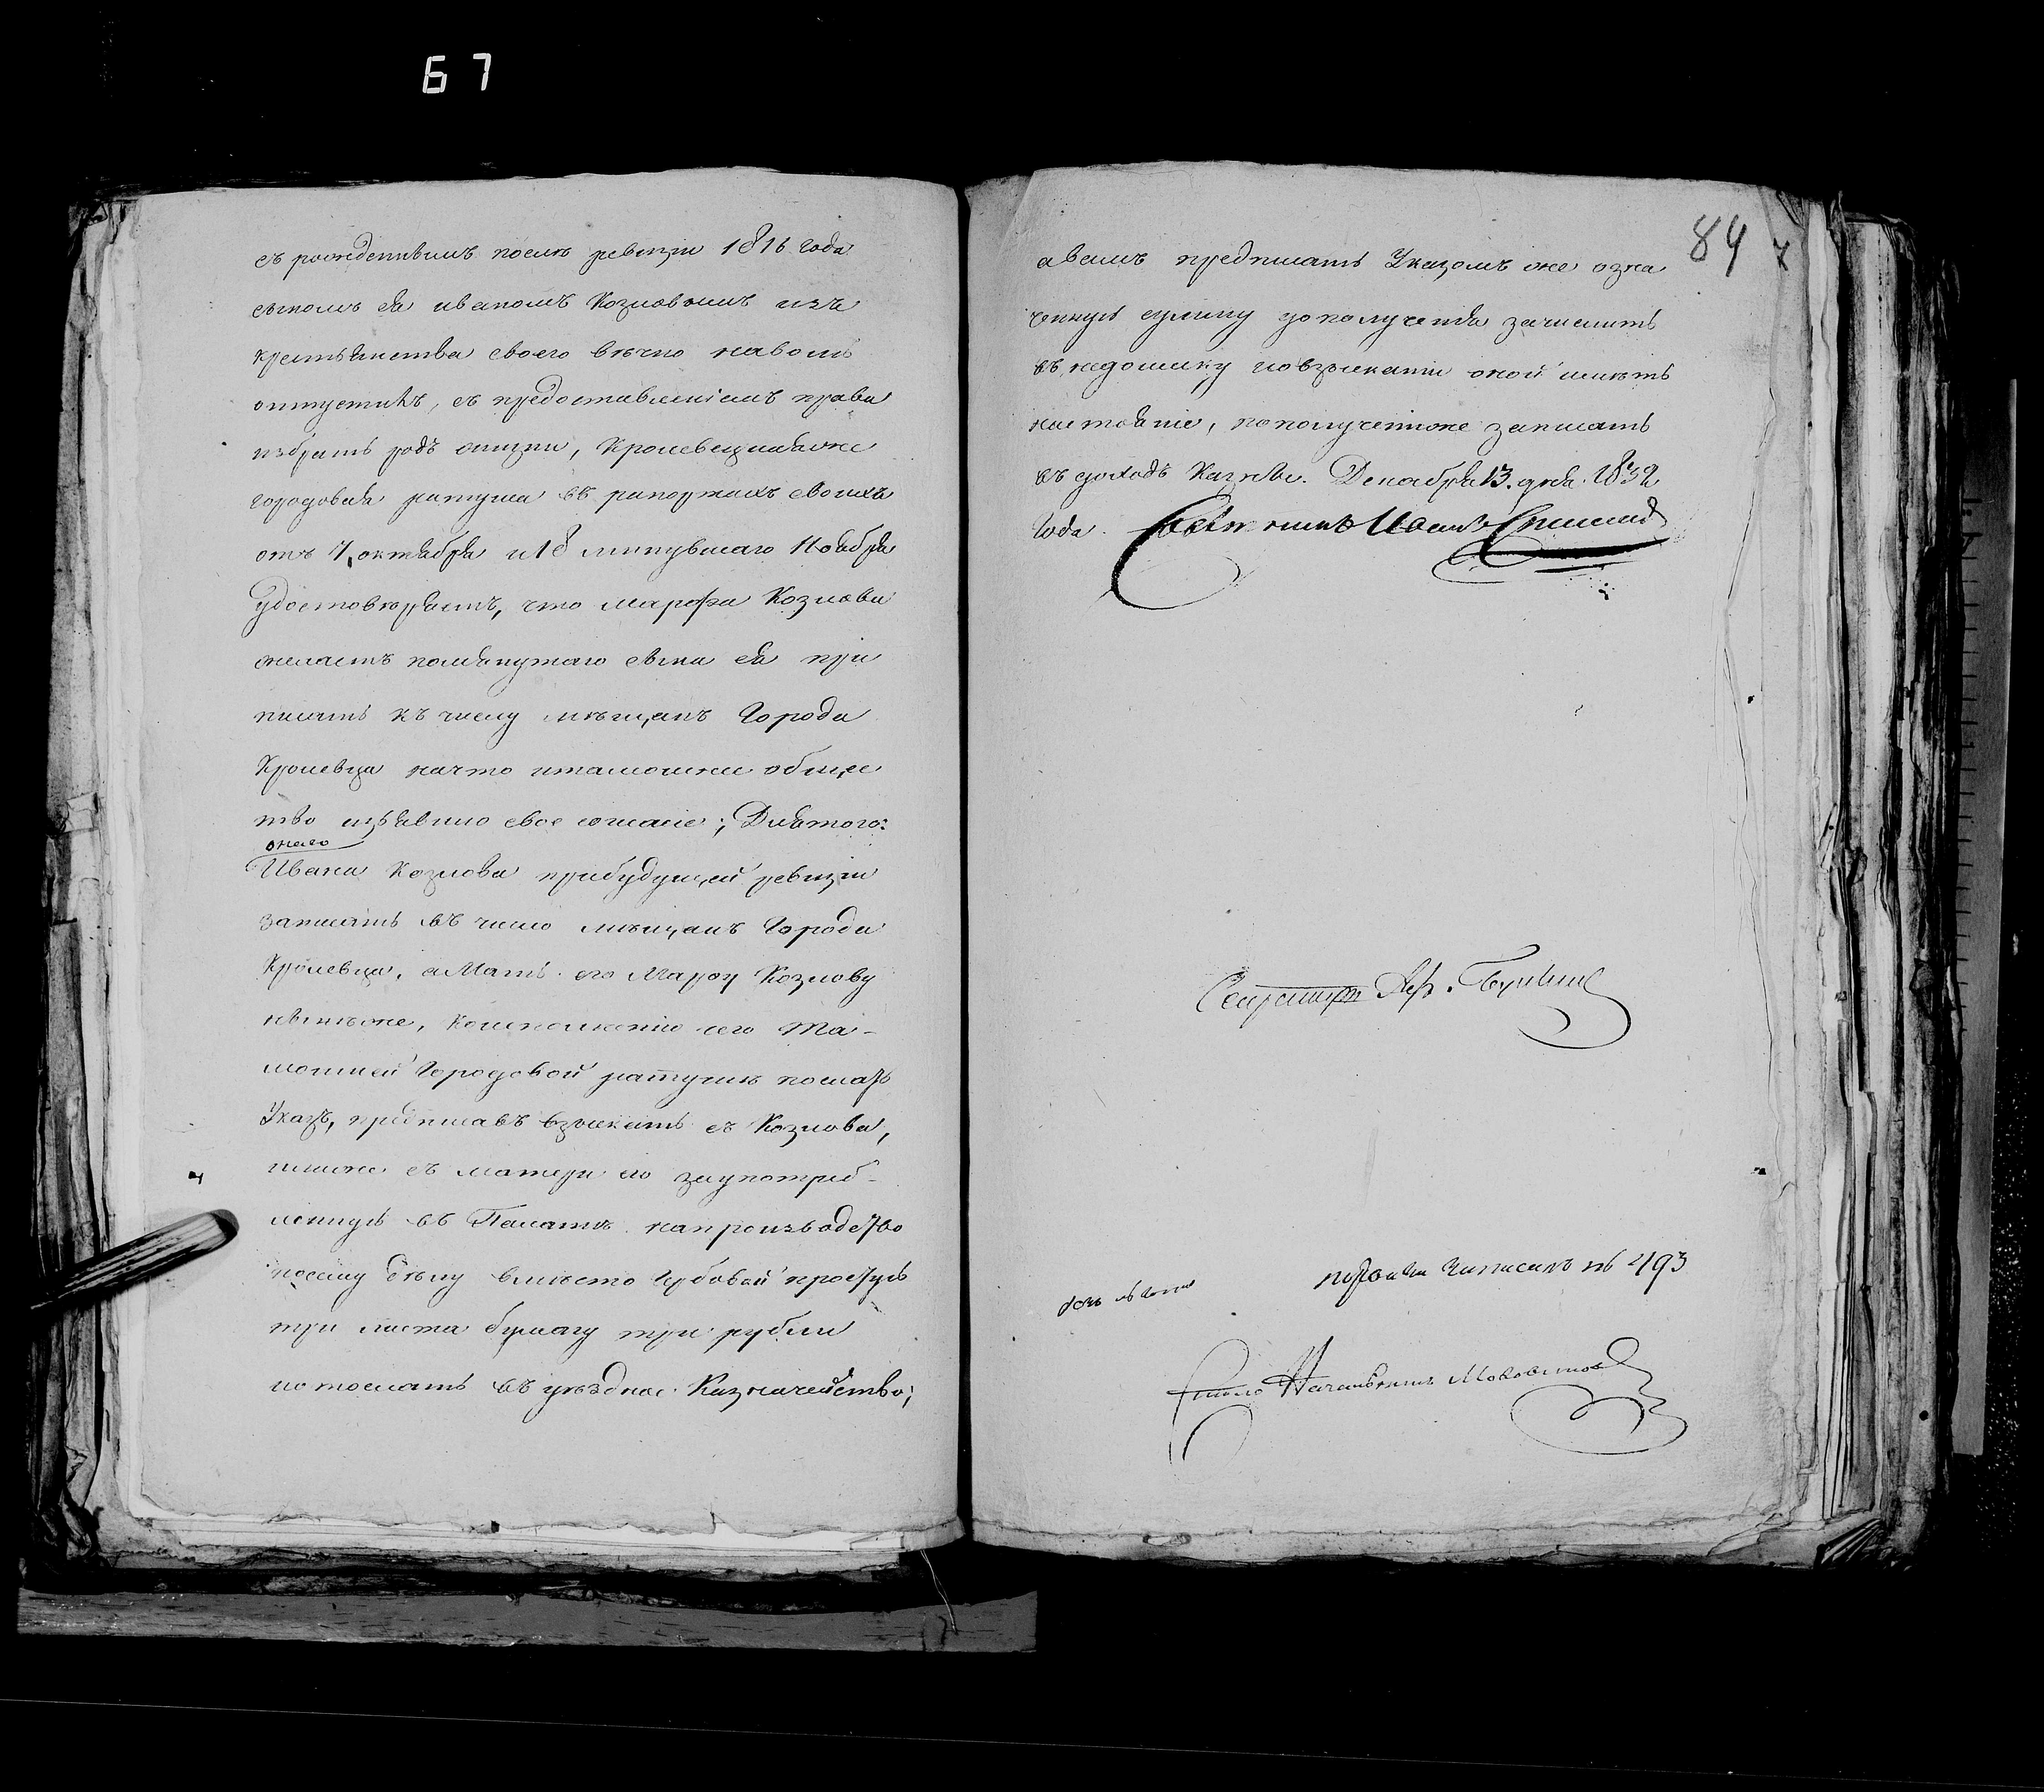 67
съ рожденнымъ послѣ ревизіи 1816 года
сыномъ ея иваномъ Козловымъ изъ
крестьянства своего вѣчно наволю
отпустилъ, съ предоставленіемъ права
избрать родъ жизни, Кролевецкаяже
городовая ратуша въ рапортахъ своихъ
отъ 7 октября и 18 минувшаго Ноября
удостовѣряетъ, что Марфа Козлова
желаетъ помянутаго сына ея при
писать къ числу мѣщанъ Города
Кролевца начто итамошнее общес
тво изъявило свое согласіе; Длятого:
онаго
Ивана Козлова прибудущей ревизіи
записать въ число мѣщанъ Города
Кролевца, а Мать его Марѳу Козлову
нынѣже, Коисполненію сего Та-
мошней Городовой ратушѣ послать
Указъ, предписавъ взыскать съ Козлова,
илиже съ матери его заупотреб-
ленную въ Палатѣ напроизводство
посему дѣлу вмѣсто Гербовой простую
три листа бумагу три рубли
и отослать въ уѣздное Казначейство;
84
авамъ предписать Указомъ же озна
ченную сумму дополученія зачислить
въ недоимку и овзысканіи оной имѣть
настояніе, пополученіиже записать
въ доходъ Казны. Декабря 13. дня 1832
Года. Совѣтникъ Иванъ
Секретарь
№ 493
Столоначальникъ